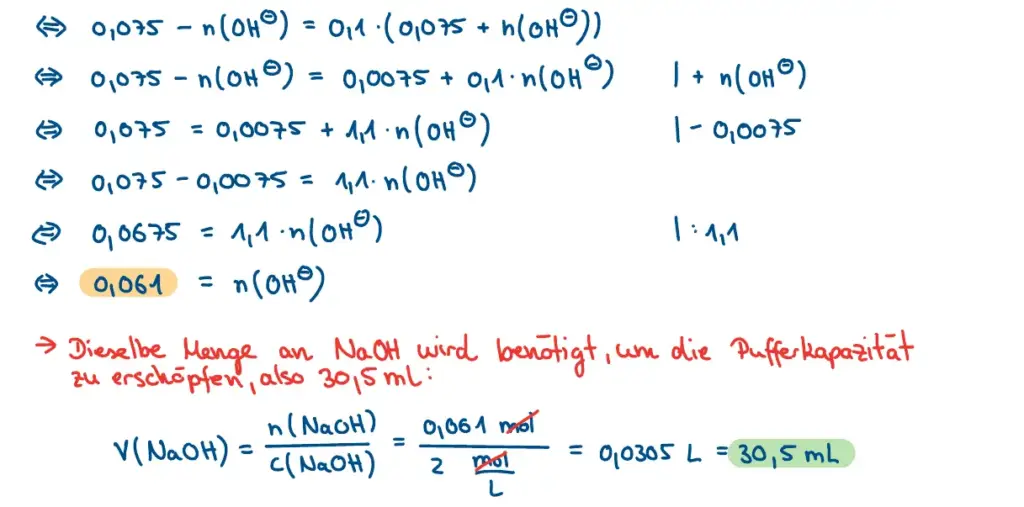 ⇔ 0,075 − n(OH⊖) = 0,1 · (0,075 + n(OH⊖))
⇔ 0,075 − n(OH⊖) = 0,0075 + 0,1 · n(OH⊖) | + n(OH⊖)
⇔ 0,075 = 0,0075 + 1,1 · n(OH⊖) | − 0,0075
⇔ 0,075 − 0,0075 = 1,1 · n(OH⊖)
⇔ 0,0675 = 1,1 · n(OH⊖) | : 1,1
⇔ 0,061 = n(OH⊖)
→ Dieselbe Menge an NaOH wird benötigt, um die Pufferkapazität
zu erschöpfen, also 30,5 mL:
V(NaOH) = n(NaOH) / c(NaOH) = 0,061 mol / 2 mol/L = 0,0305 L = 30,5 mL